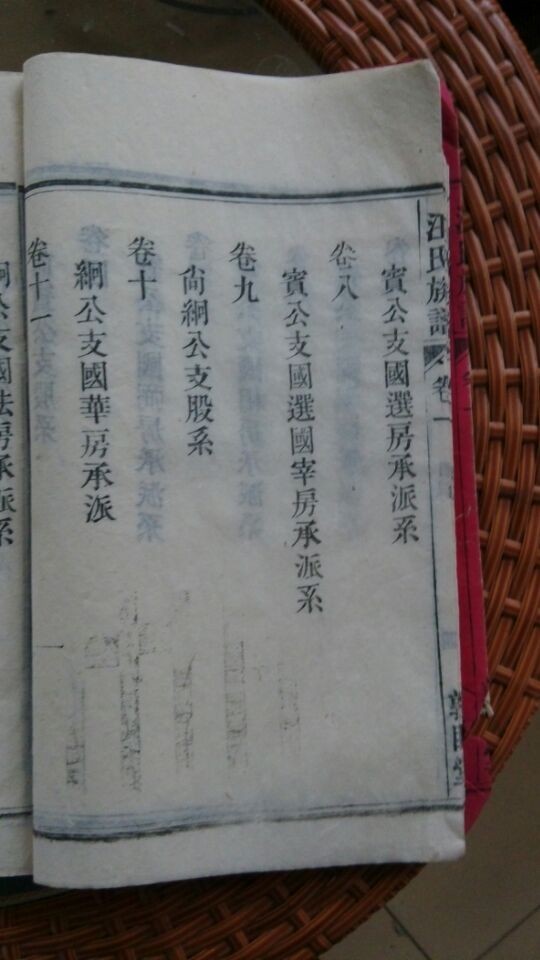 汪氏族譜 卷一
賓公支國選房承派系
卷八
賓公支國選國宰房承派系
卷九
尙絅公支股系
卷十
絅公支國華房承派
卷十一
絅公支國法房承派系